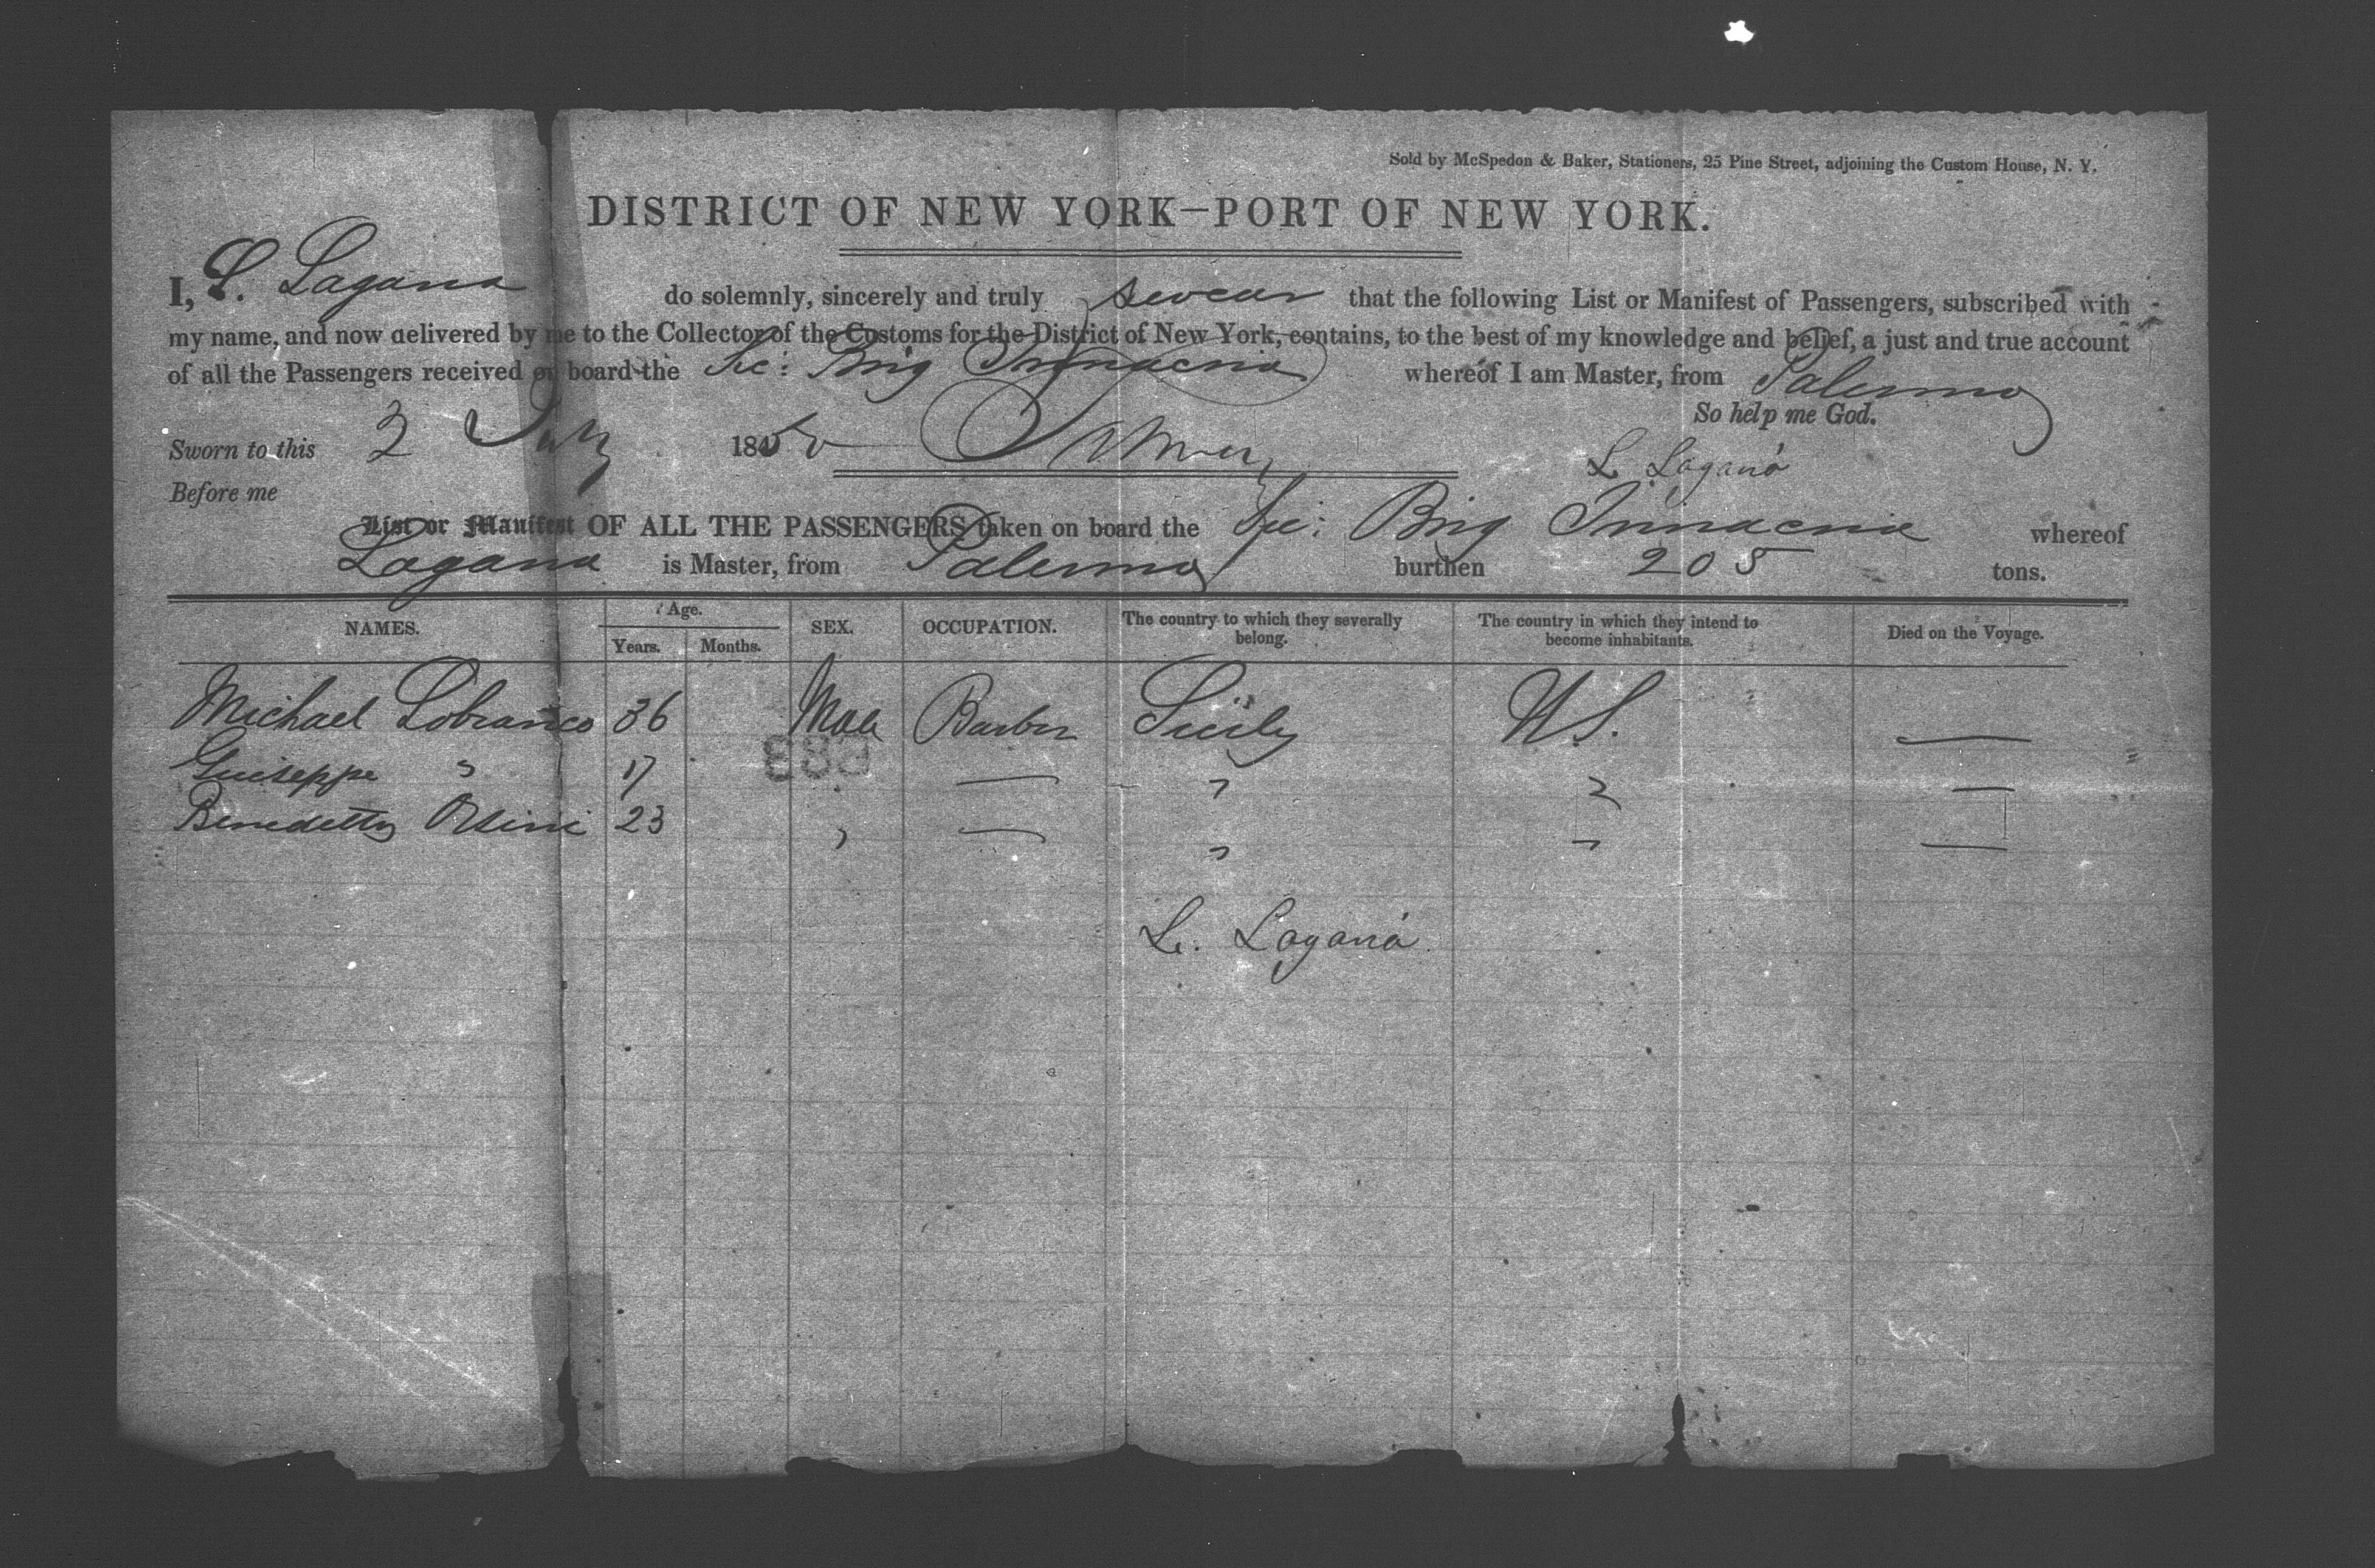 Sold by McSpedon & Baker, Stationers, 25 Pine Street, adjoining the Custom House, N. Y.
DISTRICT OF NEW YORK—PORT OF NEW YORK.
I, L. Lagana do solemnly, sincerely and truly swear that the following List or Manifest of Passengers, subscribed with
my name, and now delivered by me to the Collector of the Customs for the District of New York, contains, to the best of my knowledge and belief, a just and true account
of all the Passengers received on board the Sic: Brig whereof I am Master, from Palermo
So help me God.
Sworn to this 2 July 185
L. Laganá
Before me
List or Manifest OF ALL THE PASSENGERS taken on board the Sic: Brig whereof
Lagana is Master, from Palermo burthen 205 tons.
NAMES. Age. Years. Months. SEX. OCCUPATION. The country to which they severally belong. The country in which they intend to become inhabitants. Died on the Voyage.
Michael Lobianco 36 Male Barber Sicily U.S. —
Guiseppe " 17 — " " —
883
Benedetto 23 " — " " —
L. Laganá